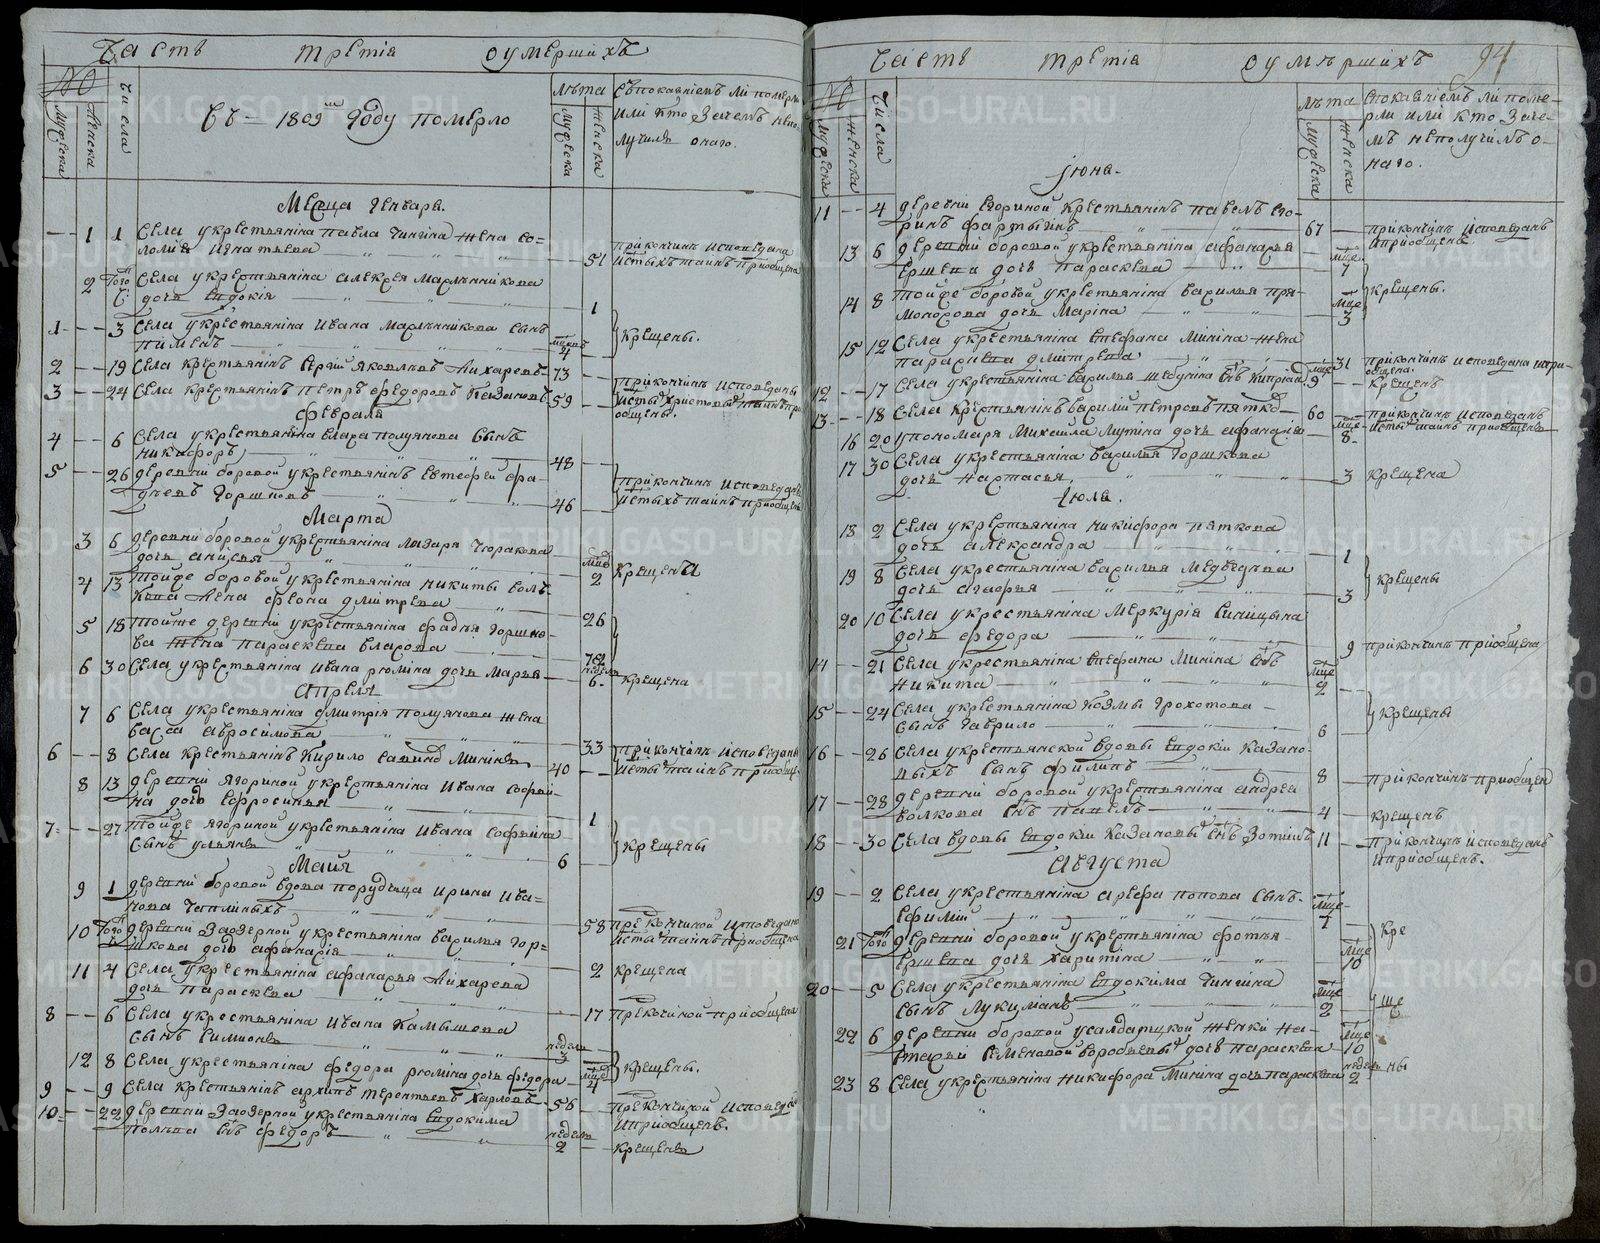 Часть третія оумершихъ
№
мужеска
женска
числа
Въ 1809м году померло
лѣта
мужеска
женска
Съ покаяніемъ ли померли
или кто зачемъ непо-
лучилъ онаго.
Месяца Генваря.
1 1 Села укрестьянина Павла Чингина жена Со-
ломія Игнатьева 51 при кончинѣ исповедана
и стыхъ таинъ приобщена
2 Того Села укрестьянина Алексея Маслянникова
дочь Евдокія 1
1 3 Села укрестьянина Ивана Маслянникова сынъ
Пименъ 4 крещены.
2 19 Села крестьянинъ Сергій Яковлевъ Лихаревъ 73
3 24 Села крестьянинъ Петръ Федоровъ Казановъ 59 при кончинѣ исповеданы
и стыхъ христовыхъ таинъ при
общены.
Февраля
4 6 Села укрестьянина Власа Полуянова сынъ
Никифоръ 48
5 26 деревни боровой укрестьянинъ Евтефей Фа-
деевъ Горшковъ 46 при кончинѣ исповеданъ
и стыхъ таинъ приобщенъ
Марта
3 6 деревни боровой укрестьянина Лазаря Чюракова
дочь Анисья 2 крещена
4 13 тойже боровой укрестьянина Никиты Вол-
кова жена Феона Дмитрева 26
5 18 тойже деревни укрестьянина Фадея Горшко-
ва жена Параскева Власова 72
6 30 Села укрестьянина Ивана Рюмина дочь Марья 6 крещена
Апреля
7 6 Села укрестьянина Дмитрія Полуянова жена
Васса Авросимова 33
6 8 Села крестьянинъ Кирило Савинъ Мининъ 40 при кончинѣ исповеданы
и стыхъ таинъ приобщ.
8 13 деревни Ягориной укрестьянина Ивана Софьи-
на дочь Ефросинья 1
7 27 тойже Ягориной укрестьянина Ивана Софьина
сынъ Ульянъ 6 крещены
Майя
9 1 деревни боровой вдова порудчица Ирина Ива-
нова Чаплиныхъ 58 при кончиной исповедана
и стыхъ таинъ приобщена
10 Того деревни Заозерной укрестьянина Василья Гор-
шкова дочь Афанасія 2 крещена
11 4 Села укрестьянина Афанасья Лихарева
дочь Параскева 17 при кончиной приобщена
8 6 Села укрестьянина Ивана Камышева
сынъ Симионъ недели 3
12 8 Села укрестьянина Федора Рюмина дочь Федора 4 крещены.
9 9 Села крестьянинъ Архипъ Терентьевъ Харловъ 56 при кончиной исповед
и приобщенъ.
10 22 деревни Заозерной укрестьянина Евдокима
Попова снъ Федоръ недели 2 крещенъ
Часть третія оумершихъ 94
№
мужеска
женска
числа
лѣта
мужеска
женска
спокаяніемъ ли поме-
рли или кто заче-
мъ неполучилъ о-
наго.
Іюня.
11 4 деревни Ягориной крестьянинъ Павелъ Его-
ринъ 67 при кончинѣ исповеданъ
и приобщенъ
13 6 деревни боровой укрестьянина Афанасья
Ершева дочь Параскева мце 7
14 8 тойже боровой укрестьянина Василья Пря-
моносова дочь Марина мце 3 крещены.
15 12 Села укрестьянина Стефана Минина жена
Параскева Дмитрева 31 при кончинѣ исповедана и при-
общена.
12 17 Села укрестьянина Василья Шебунина снъ Кипріанъ 9 крещенъ
13 18 Села крестьянинъ Василій Петровъ Пятко 60 при кончинѣ исповеданъ
и стыхъ таинъ приобщенъ
16 20 упономаря Михаила Лутина дочь Афанасья мце 8
17 30 Села укрестьянина Василья Горшкова
дочь Настасья. 3 крещена
Іюля.
18 2 Села укрестьянина Никифора Пяткова
дочь Александра 1
19 8 Села укрестьянина Василья Медведева
дочь Агафья 3 крещены
20 10 Села укрестьянина Меркурія Синицына
дочь Федора 9 при кончинѣ приобщена
14 21 Села укрестьянина Стефана Минина снъ
Никита мце 2
15 24 Села укрестьянина Козмы Грохотова
сынъ Гаврило 6 крещены
16 26 Села укрестьянской вдовы Евдокіи Казано-
выхъ сынъ Филипъ 8 при кончинѣ приобщенъ
17 28 деревни боровой укрестьянина Андрея
Волкова снъ Павелъ 4 крещенъ
18 30 Села вдовы Евдокіи Казановыхъ снъ Зотикъ 11 при кончинѣ исповеданъ
и приобщенъ.
Августа
19 2 Села укрестьянина Арефа Попова сынъ
Ефимій мце 7
21 Того деревни боровой укрестьянина Фотья
Ершева дочь Харитина мце 10 кре
20 5 Села укрестьянина Евдокима Чингина
сынъ Лукиянъ мце 2 ще
22 6 деревни боровой усалдатцкой женки На-
стасьи Семеновой Воробьевыхъ дочь Параскева мце 10
23 8 Села укрестьянина Никифора Минина дочь Параскева недель 2 ны
METRIKI.GASO-URAL.RU